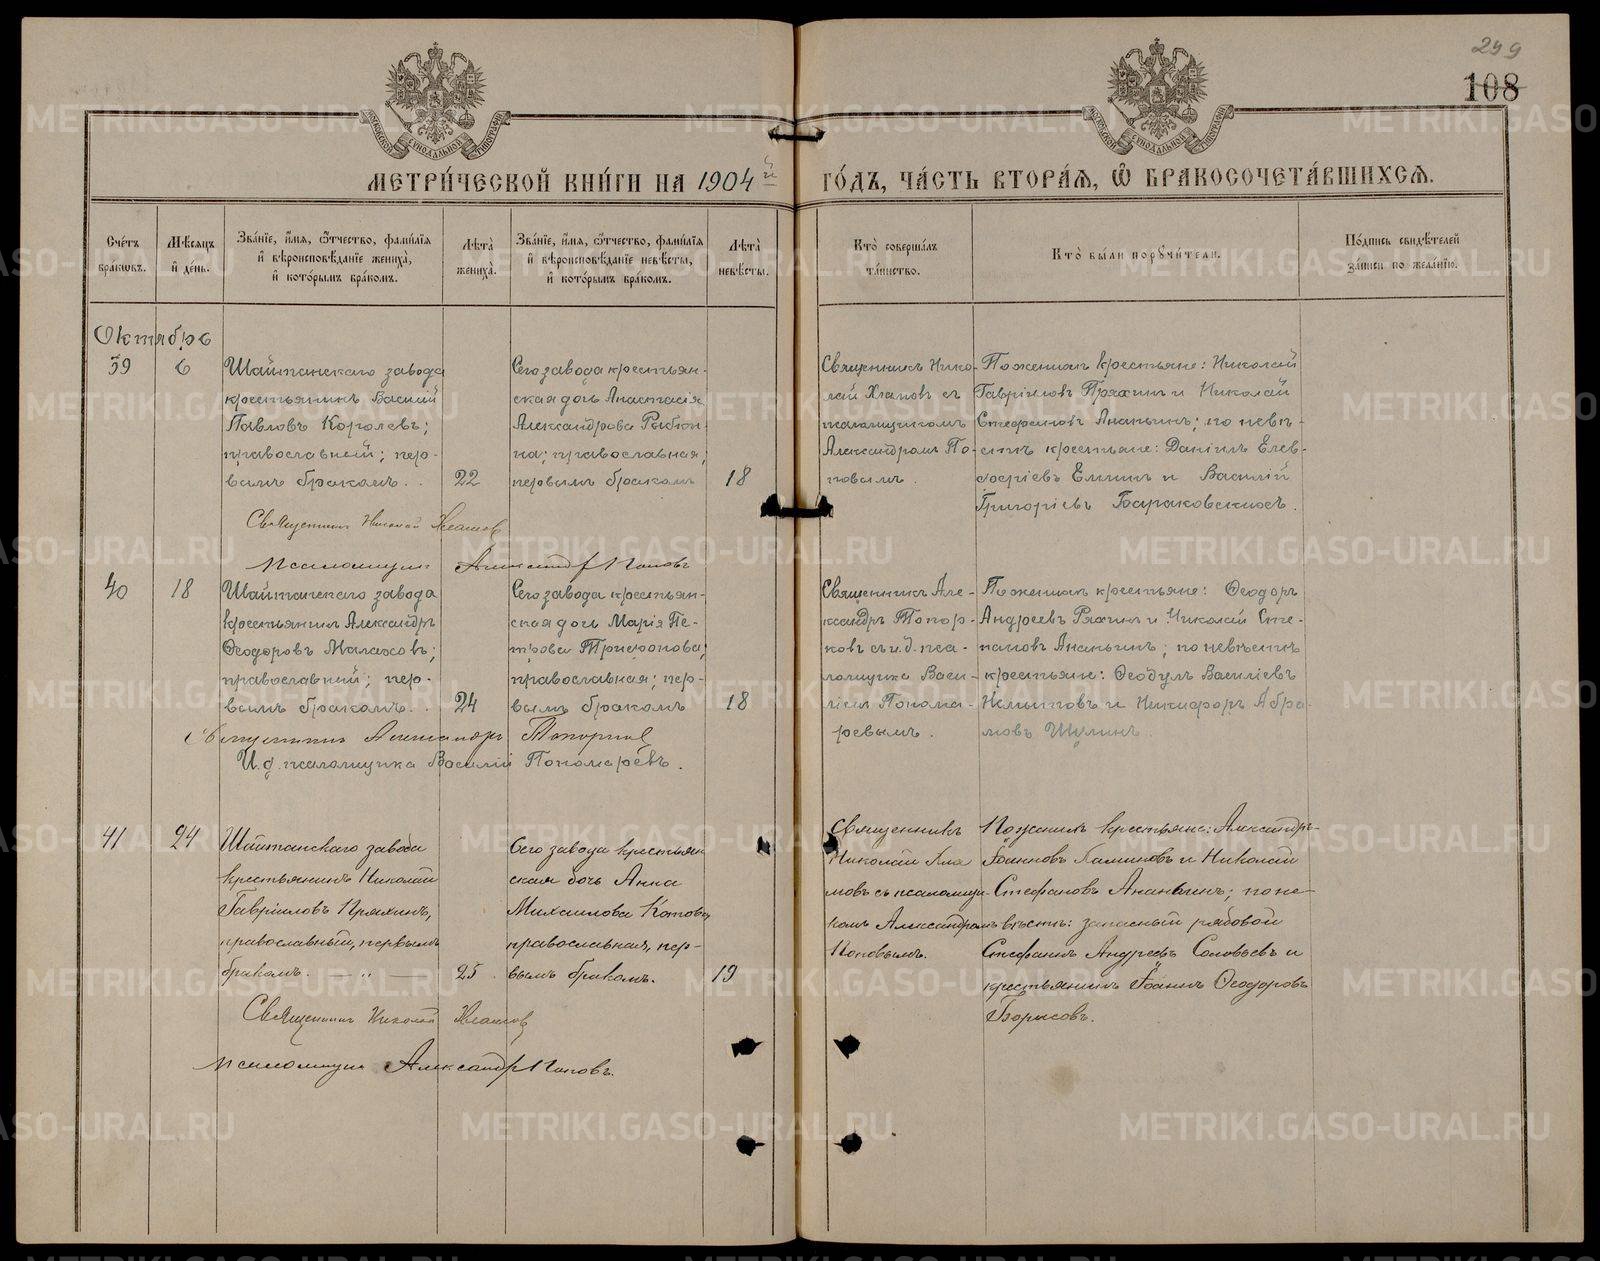 299
108
МОСКОВСКОЙ СѴНОДАЛЬНОЙ ТИПОГРАФІИ
МОСКОВСКОЙ СѴНОДАЛЬНОЙ ТИПОГРАФІИ
МЕТРИ́ЧЕСКОЙ КНИ́ГИ НА 1904й ГО́ДЪ, ЧА́СТЬ ВТОРА́Я, Ѽ БРАКОСОЧЕТА́ВШИХСЯ.
Сче́тъ бра́кωвъ.
Мѣ́сяцъ и҆ де́нь.
Зва́нїе, и҆́мя, ѻ҆́тчество, фами́лїя
и҆ вѣроисповѣ́данїе жениха̀,
и҆ кото́рымъ бра́комъ.
Лѣ́та жениха̀.
Зва́нїе, и҆́мя, ѻ҆́тчество, фами́лїя
и҆ вѣроисповѣ́данїе невѣ́сты,
и҆ кото́рымъ бра́комъ.
Лѣ́та невѣ́сты.
Кто̀ соверша́лъ та́инство.
Кто̀ бы́ли порꙋчи́тели.
По́дпись свидѣ́телей за́писи по жела́нїю.
Октябрь
39
6
Шайтанскаго завода
крестьянинъ Василій
Павловъ Королевъ;
православный; пер-
вымъ бракомъ. .
22
Сего завода крестьян-
ская дочь Анастасія
Александрова
православная;
первымъ бракомъ
18
Священникъ Нико-
лай Хламовъ съ
псаломщикомъ
Александромъ По-
повымъ.
По женихѣ крестьяне: Николай
Гавріиловъ Пряхинъ и Николай
Стефановъ Ананьинъ; по невѣ-
стѣ крестьяне: Даніилъ Елев-
феріевъ Елкинъ и Василій
Григоріевъ
Священникъ Николай Хламовъ
псаломщикъ Александръ Поповъ
40
18
Шайтанскаго завода
крестьянинъ Александръ
Ѳеодоровъ Малаховъ;
православный; пер-
вымъ бракомъ. .
24
Сего завода крестьян-
ская дочь Марія Пе-
трова Трифонова;
православная; пер-
вымъ бракомъ
18
Священникъ Але-
ксандръ Топор-
ковъ съ и.д. пса-
ломщика Васи-
ліемъ Понома-
ревымъ.
По женихѣ крестьяне: Ѳеодоръ
Андреевъ Ряхинъ и Николай Сте-
пановъ Ананьинъ; по невѣстѣ
крестьяне: Ѳеодулъ Василіевъ
и Никифоръ Абра-
мовъ Шулинъ.
Священникъ Александръ Топорковъ
И.д. псаломщика Василій Пономаревъ.
41
24
Шайтанскаго завода
крестьянинъ Николай
Гавріиловъ Пряхинъ,
православный, первымъ
бракомъ. — „ —
25
Сего завода крестьян
ская дочь Анна
Михаилова Котова,
православная, пер-
вымъ бракомъ.
19
Священникъ
Николай Хла
мовъ съ псаломщи-
комъ Александромъ
Поповымъ.
По женихѣ крестьяне: Александръ
Іоанновъ и Николай
Стефановъ Ананьинъ; по не-
вѣстѣ: запасный рядовой
Стефанъ Андреевъ Соловьевъ и
крестьянинъ Іоаннъ Ѳеодоровъ
Борисовъ.
Священникъ Николай Хламовъ
псаломщикъ Александръ Поповъ.
METRIKI.GASO-URAL.RU